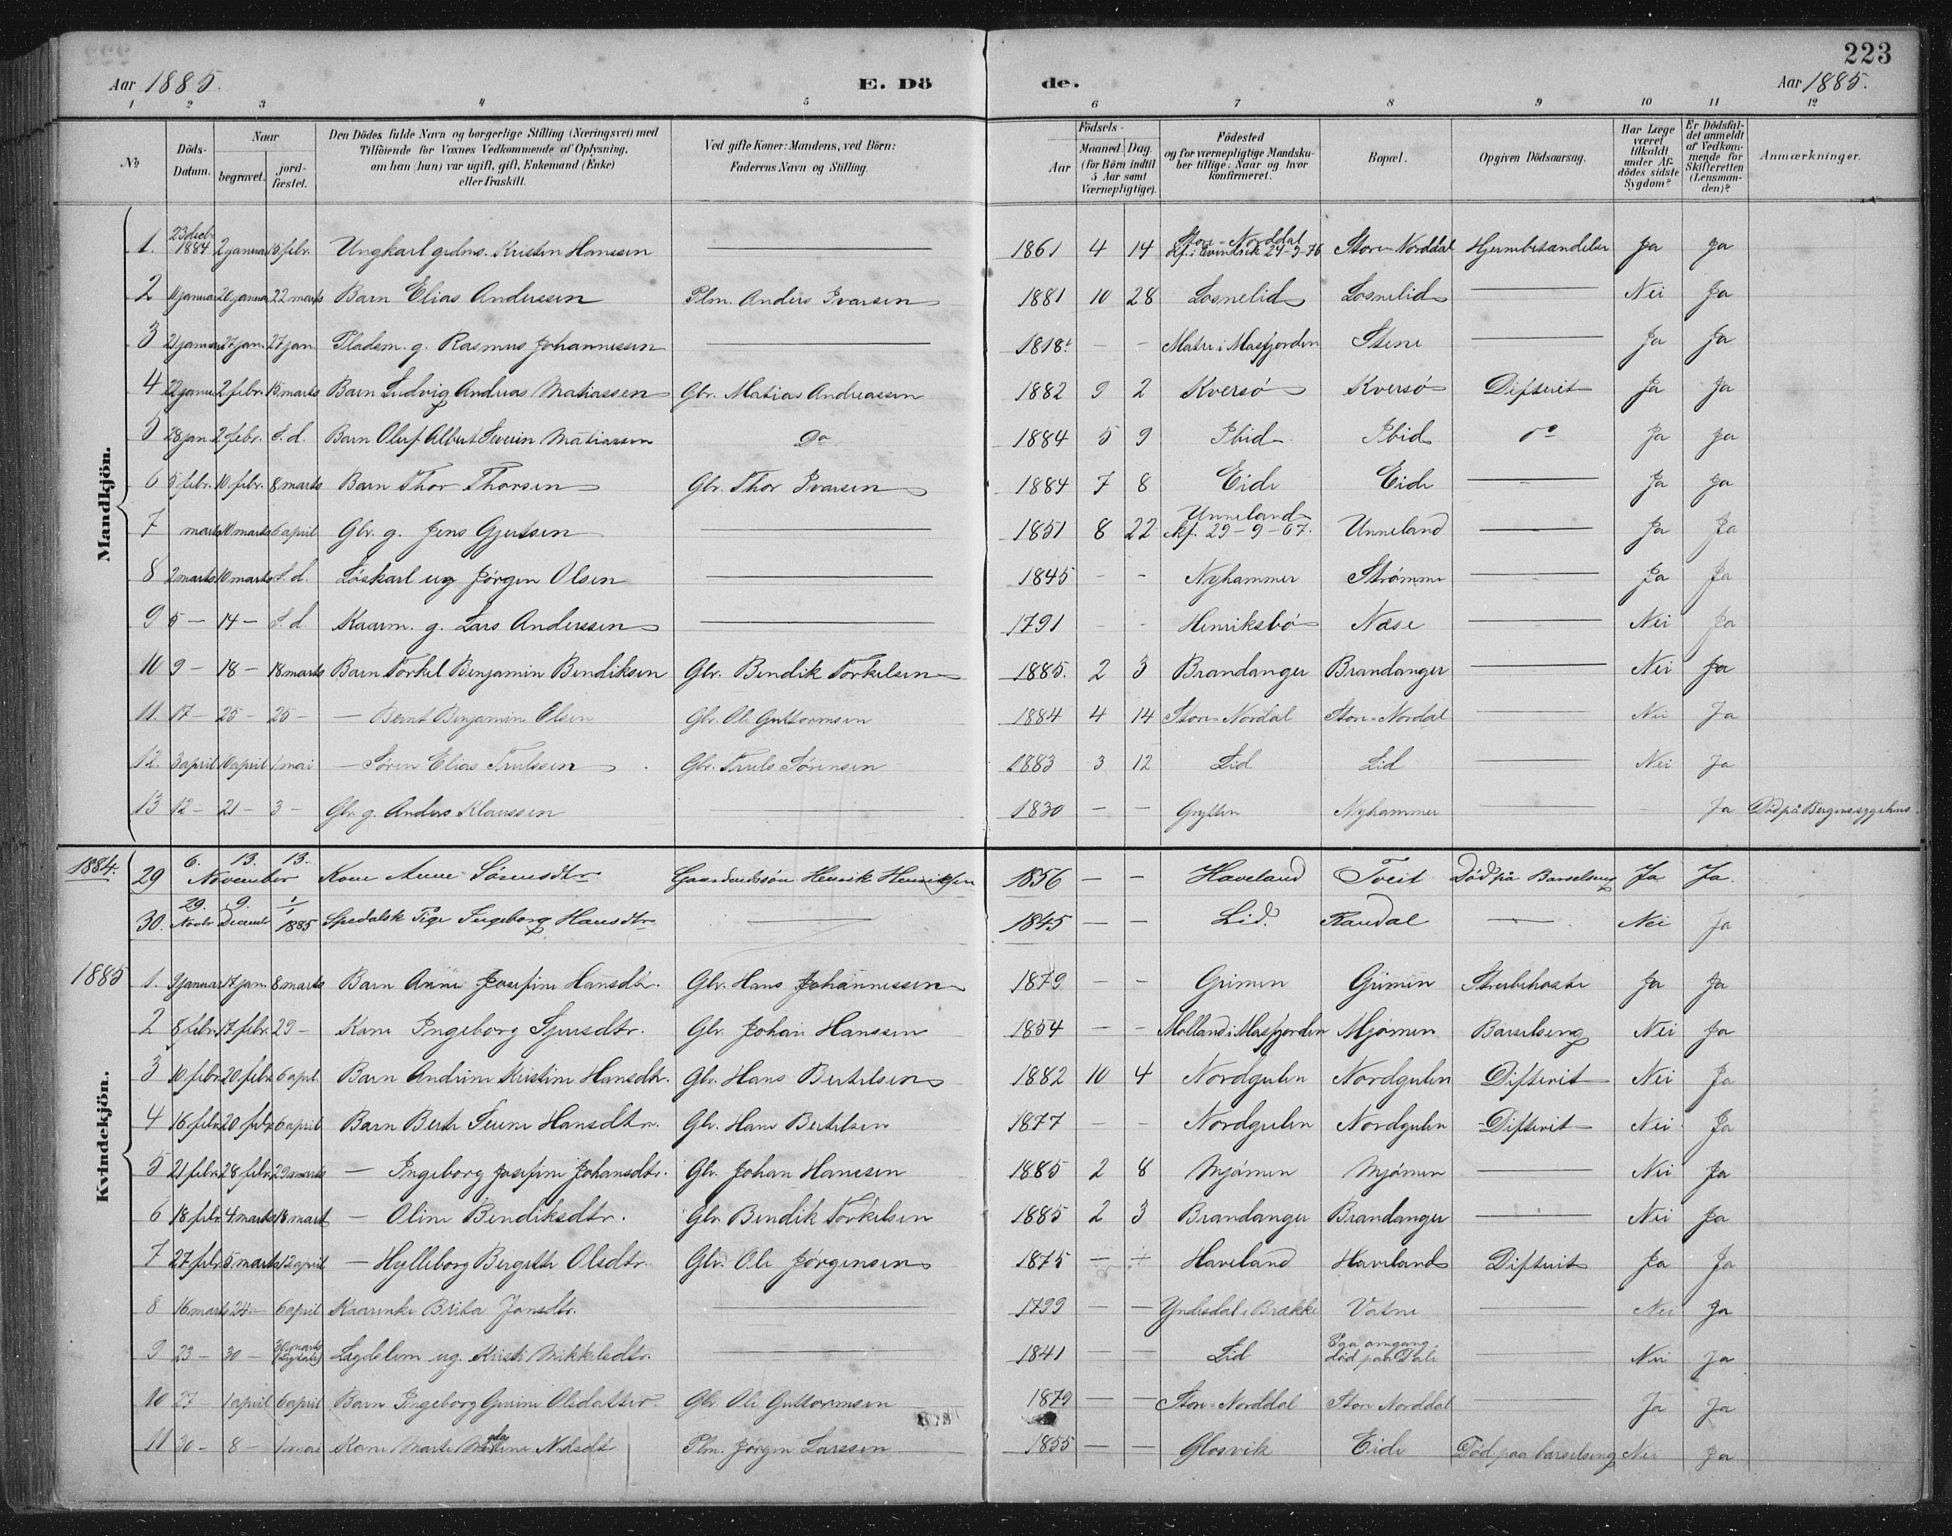 223
Aar 1885. E. Döde. Aar 1885.
1 2 3 4 5 6 7 8 9 10 11 12
No
Döds-Datum.
Naar
begravet.
jord-fæstet.
Den Dödes fulde Navn og borgerlige Stilling (Næringsvei) med
Tilföiende for Voxnes Vedkommende af Oplysning,
om han (hun) var ugift, gift, Enkemand (Enke)
eller fraskilt.
Ved gifte Koner: Mandens, ved Börn:
Faderens Navn og Stilling.
Födsels-
Aar
Maaned. Dag.
(for Börn indtil
5 Aar samt
Værnepligtige).
Födested
og for værnepligtige Mandska-
ber tillige: Naar og hvor
konfirmeret.
Bopæl.
Opgiven Dödsaarsag.
Har Læge
været
tilkaldt
under Af-
dödes sidste
Sygdom?
Er Dödsfal-
det anmeldt
af Vedkom-
mende for
Skifteretten
(Lensman-
den)?
Anmærkninger.
Mandkjön.
1. 23 decb. 1884 2 januar 8 febr. Ungkarl grdms. Kristen Hanssen — 1861 4 14 Store-Norddal kf. i Evindvik 24-9-76 Store-Norddal Hjernebetændelse Ja Ja
2 11 januar 26 januar 22 marts Barn Elias Anderssen Plm. Anders Ivarsen 1881 10 28 Losnelid Losnelid — Nei Ja
3 21 januar 27 jan. 27 jan Pladsm. g. Rasmus Johannessen — 1818. — — Matre i Masfjorden Stene — Ja Ja
4 22 januar 2 febr. 15 marts Barn Ludvig Andreas Matiassen Gbr. Matias Andreassen 1882 9 2 Kversø Kversø Difterit Ja Ja
5 28 jan 2 febr. s. d. Barn Oluf Albert Severin Matiassen Do 1884 5 9 Ibid Ibid do Ja Ja
6 5 febr. 10 febr. 8 marts Barn Thor Thorsen Gbr. Thor Ivarsen 1884 7 8 Eide Eide — Ja Ja
7 marts 10 marts 6 april Gbr. g. Jens Gjertsen — 1851 8 22 Unneland kf. 29-9-67. Unneland — Ja Ja
8 2 marts 10 marts s. d. Løskarl ug Jørgen Olsen — 1845 - - Nyhammer Strømme — Ja Ja
9 5 — 14 — s. d Kaarm. g. Lars Anderssen — 1791 - - Henriksbø Næse — Nei Ja
10 9 — 18 — 18 marts Barn Torkel Benjamin Bendiksen Gbr. Bendik Torkelsen 1885. 2 3 Brandanger Brandanger — Nei Ja
11. 17 — 25 — 25 — — Bernt Benjamin Olsen Gbr. Ole Guttormsen 1884 4 14 Store-Nordal Store-Nordal — Nei Ja
12. 3 april 10 april 1 mai — Søren Elias Trulssen Gbr. Truls Sørensen 1883 3 12 Lid Lid — Nei Ja
13 12 — 21 — 3 — Gbr g. Anders Klaussen — 1830 — — Grytten Nyhammer — Ja Død på Bergens sygehus.
1884. 29 6. 13. 13. November Kone Anne Sørensdtr Gaardmandssøn Henrik Henriksen 1856 — — Haveland Tveit Død på Barselseng Ja Ja.
30. 29. Novbr 9. Decembr 1/1 1885 Spedalsk Pige Ingeborg Hansdtr — 1845 — — Lid. Raudal — Nei Ja
Kvindekjön.
1885 1. 9 januar 17 jan. 8 marts Barn Anne Josefine Hansdtr. Gbr. Hans Johannessen 1879 — — Grimen Grimen Strubehoste Ja Ja
2 8 febr. 17 febr. 29 — Kone Ingeborg Sjursdtr. Gbr. Johan Hanssen 1854 — — Molland i Masfjorden Mjømen Barselseng Nei Ja
3 10 febr 20 febr. 6 apl Barn Andrine Kristine Hansdtr. Gbr. Hans Bertelsen 1882 10 4 Nordgulen Nordgulen Difterit Nei Ja
4 16 febr. 20 febr. 6 april Barn Berte Serine Hansdtr. Gbr. Hans Bertelsen 1877 - - Nordgulen Nordgulen Difterit Nei Ja
5 21 febr. 28 febr. 29 marts — Ingeborg Josefine Johansdtr. Gbr. Johan Hanssen 1885 2 8 Mjømen Mjømen — Nei Ja
6 18 febr 4 marts 18 mart — Oline Bendiksdtr. Gbr Bendik Torkelsen 1885 2 3 Brandanger Brandanger — Nei Ja
7 27 febr. 5 marts 12 april — Hylleborg Bergitte Olsdtr. Gbr. Ole Jørgensen 1875 — — Haveland Haveland Difterit Ja Ja
8 16 marts 24 — 6 april Kaarenke Brita Jonsdtr. 1799 — — Yndesdal i Brække Vatne — Nei Ja
9 23 — 30 — 30 marts Lægdslem ug. Kristi Mikkelsdtr. — 1841 — — Lid Paa omgang, død paa Dale — Nei Ja
10 27 1 april 6 april Barn Ingeborg Gurine Olsdatter Gbr Ole Guttormsen 1879 — — Store-Norddal Store Norddal — Ja Ja
11 30 — 8 — 1 mai Kone Marte Nilsdt. Plm. Jørgen Larssen 1855 — — Glosvik Eide Død paa barselseng Nei Ja